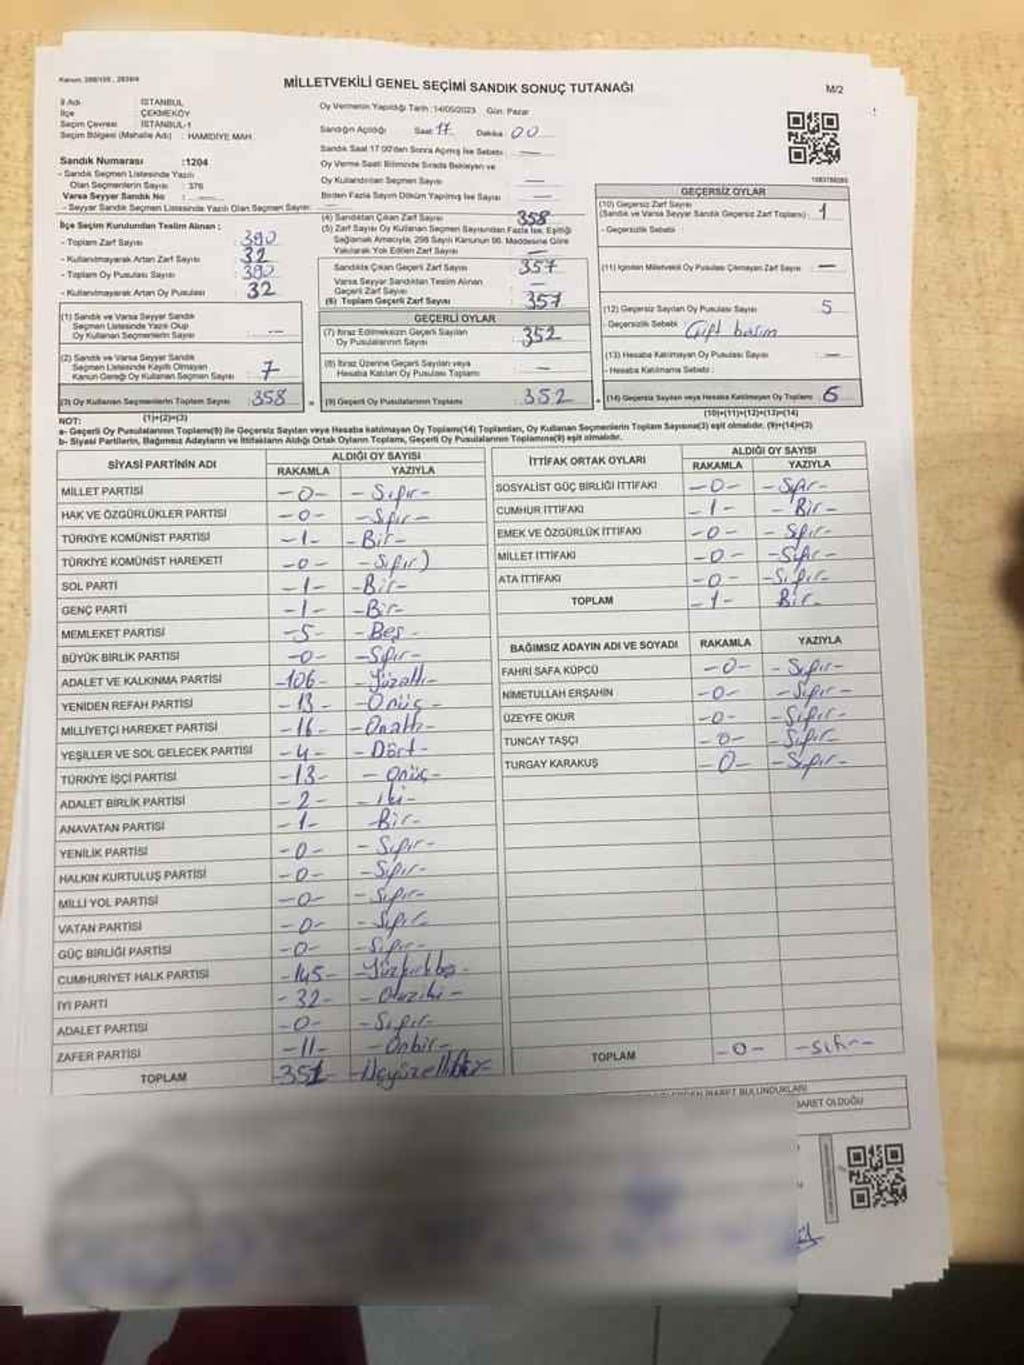 Kanun: 298/105 , 2839/4
MİLLETVEKİLİ GENEL SEÇİMİ SANDIK SONUÇ TUTANAĞI
M/2
İl Adı : İSTANBUL
İlçe : ÇEKMEKÖY
Seçim Çevresi : İSTANBUL-1
Seçim Bölgesi (Mahalle Adı) : HAMİDİYE MAH.
Sandık Numarası :1204
- Sandık Seçmen Listesinde Yazılı
Olan Seçmenlerin Sayısı : 376
Varsa Seyyar Sandık No :
- Seyyar Sandık Seçmen Listesinde Yazılı Olan Seçmen Sayısı:
İlçe Seçim Kurulundan Teslim Alınan :
- Toplam Zarf Sayısı : 390
- Kullanılmayarak Artan Zarf Sayısı : 32
- Toplam Oy Pusulası Sayısı : 390
- Kullanılmayarak Artan Oy Pusulası : 32
(1) Sandık ve Varsa Seyyar Sandık
Seçmen Listesinde Yazılı Olup
Oy Kullanan Seçmenlerin Sayısı : —
(2) Sandık ve Varsa Seyyar Sandık
Seçmen Listesinde Kayıtlı Olmayan
Kanun Gereği Oy Kullanan Seçmen Sayısı : 7
(3) Oy Kullanan Seçmenlerin Toplam Sayısı : 358
(1)+(2)=(3)
Oy Vermenin Yapıldığı Tarih :14/05/2023 Gün: Pazar
Sandığın Açıldığı Saat: 17 Dakika: 00
Sandık Saat 17:00'dan Sonra Açılmış İse Sebebi: —
Oy Verme Saati Bitiminde Sırada Bekleyen ve
Oy Kullandırılan Seçmen Sayısı : —
Birden Fazla Sayım Döküm Yapılmış İse Sayısı : —
(4) Sandıktan Çıkan Zarf Sayısı : 358
(5) Zarf Sayısı Oy Kullanan Seçmen Sayısından Fazla İse, Eşitliği
Sağlamak Amacıyla, 298 Sayılı Kanunun 98. Maddesine Göre
Yakılarak Yok Edilen Zarf Sayısı : —
Sandıkta Çıkan Geçerli Zarf Sayısı : 357
Varsa Seyyar Sandıktan Teslim Alınan
Geçerli Zarf Sayısı : —
(6) Toplam Geçerli Zarf Sayısı : 357
GEÇERLİ OYLAR
(7) İtiraz Edilmeksizin Geçerli Sayılan
Oy Pusulalarının Sayısı : 352
(8) İtiraz Üzerine Geçerli Sayılan veya
Hesaba Katılan Oy Pusulası Toplamı : —
= (9) Geçerli Oy Pusulalarının Toplamı : 352
GEÇERSİZ OYLAR
(10) Geçersiz Zarf Sayısı
(Sandık ve Varsa Seyyar Sandık Geçersiz Zarf Toplamı) : 1
- Geçersizlik Sebebi :
(11) İçinden Milletvekili Oy Pusulası Çıkmayan Zarf Sayısı : —
(12) Geçersiz Sayılan Oy Pusulası Sayısı : 5
- Geçersizlik Sebebi : Çift basım
(13) Hesaba Katılmayan Oy Pusulası Sayısı : —
- Hesaba Katılmama Sebebi :
+ (14) Geçersiz Sayılan veya Hesaba Katılmayan Oy Toplamı : 6
(10)+(11)+(12)+(13)=(14)
NOT:
a- Geçerli Oy Pusulalarının Toplamı(9) ile Geçersiz Sayılan veya Hesaba katılmayan Oy Toplamı(14) Toplamları, Oy Kullanan Seçmenlerin Toplam Sayısına(3) eşit olmalıdır. (9)+(14)=(3)
b- Siyasi Partilerin, Bağımsız Adayların ve İttifakların Aldığı Ortak Oyların Toplamı, Geçerli Oy Pusulalarının Toplamına(9) eşit olmalıdır.
SİYASİ PARTİNİN ADI ALDIĞI OY SAYISI
RAKAMLA YAZIYLA
MİLLET PARTİSİ -0- -Sıfır-
HAK VE ÖZGÜRLÜKLER PARTİSİ -0- -Sıfır-
TÜRKİYE KOMÜNİST PARTİSİ -1- -Bir-
TÜRKİYE KOMÜNİST HAREKETİ -0- -Sıfır)
SOL PARTİ -1- -Bir-
GENÇ PARTİ -1- -Bir-
MEMLEKET PARTİSİ -5- -Beş-
BÜYÜK BİRLİK PARTİSİ -0- -Sıfır-
ADALET VE KALKINMA PARTİSİ -106- -Yüzaltı-
YENİDEN REFAH PARTİSİ -13- -Onüç-
MİLLİYETÇİ HAREKET PARTİSİ -16- -Onaltı-
YEŞİLLER VE SOL GELECEK PARTİSİ -4- -Dört-
TÜRKİYE İŞÇİ PARTİSİ -13- -onüç-
ADALET BİRLİK PARTİSİ -2- -iki-
ANAVATAN PARTİSİ -1- -Bir-
YENİLİK PARTİSİ -0- -Sıfır-
HALKIN KURTULUŞ PARTİSİ -0- -Sıfır-
MİLLİ YOL PARTİSİ -0- -Sıfır-
VATAN PARTİSİ -0- -Sıfır-
GÜÇ BİRLİĞİ PARTİSİ -0- -Sıfır-
CUMHURİYET HALK PARTİSİ -145- -Yüzkırkbeş-
İYİ PARTİ -32- -Otuziki-
ADALET PARTİSİ -0- -Sıfır-
ZAFER PARTİSİ -11- -Onbir-
TOPLAM -351-
İTTİFAK ORTAK OYLARI ALDIĞI OY SAYISI
RAKAMLA YAZIYLA
SOSYALİST GÜÇ BİRLİĞİ İTTİFAKI -0- -Sıfır-
CUMHUR İTTİFAKI -1- -Bir-
EMEK VE ÖZGÜRLÜK İTTİFAKI -0- -Sıfır-
MİLLET İTTİFAKI -0- -Sıfır-
ATA İTTİFAKI -0- -Sıfır-
TOPLAM -1- Bir-
BAĞIMSIZ ADAYIN ADI VE SOYADI RAKAMLA YAZIYLA
FAHRİ SAFA KÜPCÜ -0- -Sıfır-
NİMETULLAH ERŞAHİN -0- -Sıfır-
ÜZEYFE OKUR -0- -Sıfır-
TUNCAY TAŞÇI -0- -Sıfır-
TURGAY KARAKUŞ -0- -Sıfır-
TOPLAM -0- -Sıfır-
İBARET BULUNDUKLARI
İBARET OLDUĞU